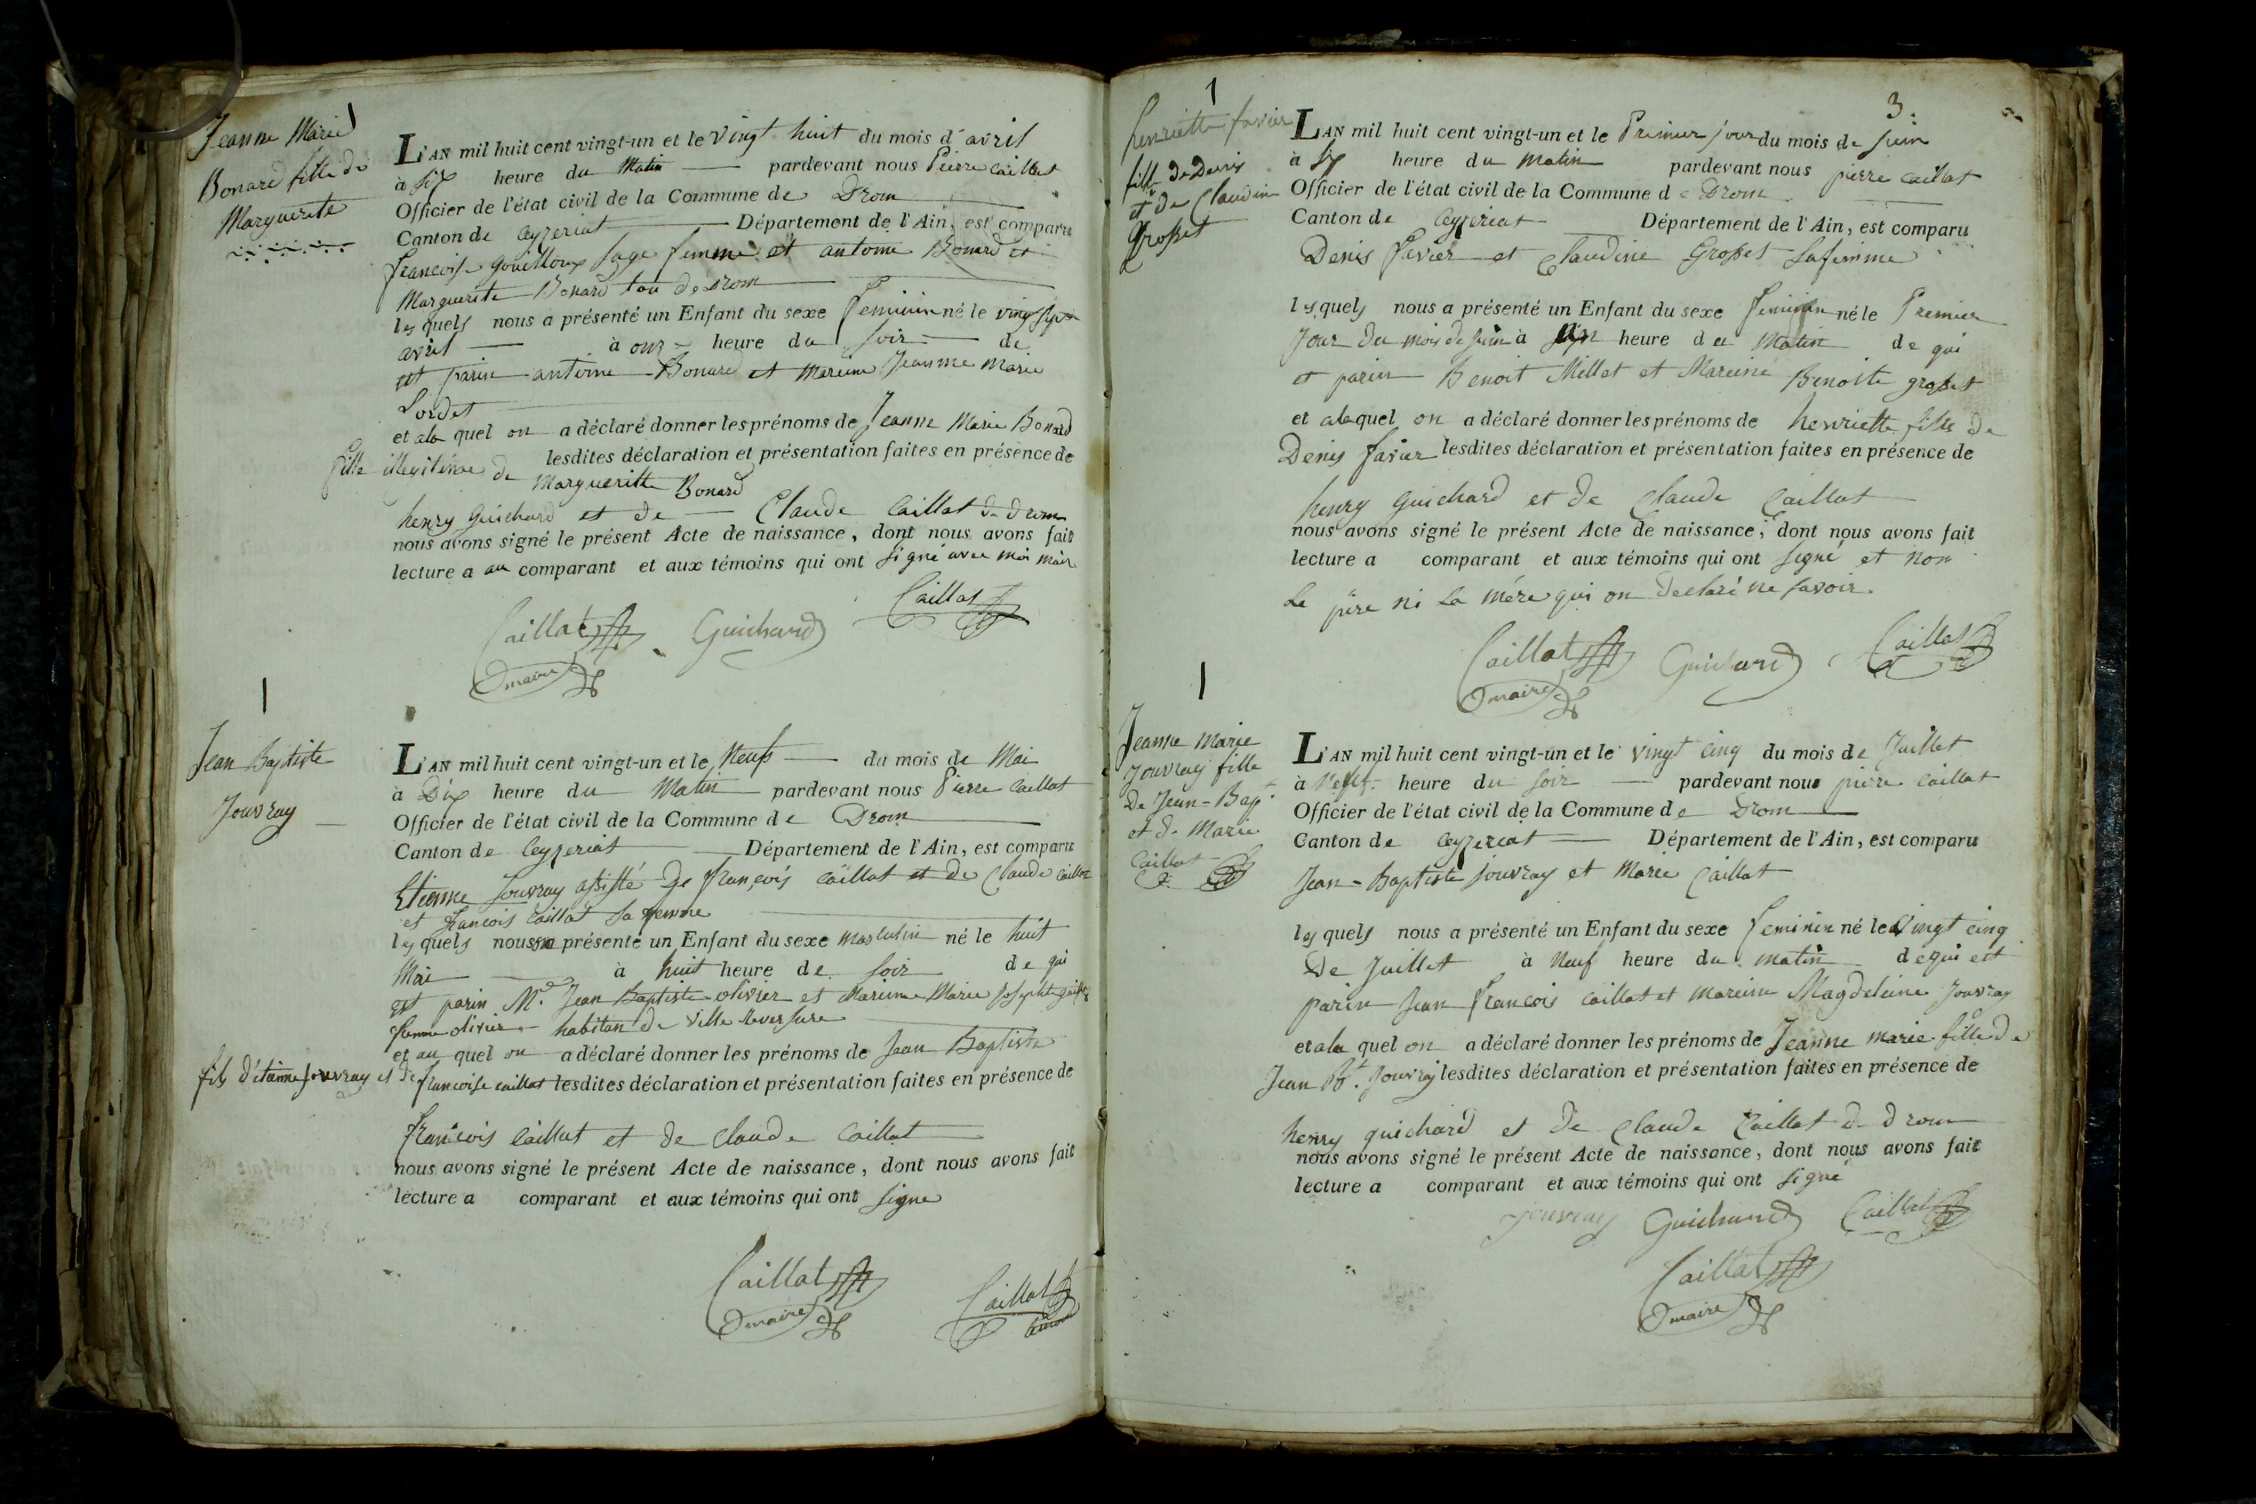 Jeanne Marie
Bonard fille de
Marguerite
L'AN mil huit cent vingt-un et le vingt huit du mois d'avril
à six heure du Matin pardevant nous Pierre Caillat
Officier de l'état civil de la Commune de Drom
Canton de Ceyzeriat Département de l'Ain, est comparu
francoise gouilloux sage femme et antoine Bonard et
Marguerite Bonard tou de Drom
les quels nous a présenté un Enfant du sexe feminin né le
avril à onz heure du soir de
et parin antoine Bonard et Mareine Jeanne Marie
Lordet
et a la quel on a déclaré donner les prénoms de Jeanne Marie Bonard
fille illegitime de Marguerite Bonard lesdites déclaration et présentation faites en présence de
henry Guichard et de Claude Caillat de drom
nous avons signé le présent Acte de naissance, dont nous avons fait
lecture a au comparant et aux témoins qui ont signé avec moi maire
Caillat
Guichard
Caillat
maire
1
Jean Baptiste
Jouvray
L'AN mil huit cent vingt-un et le Neuf du mois de Mai
à Dix heure du Matin pardevant nous Pierre Caillat
Officier de l'état civil de la Commune de Drom
Canton de Ceyzeriat Département de l'Ain, est comparu
Etienne Jouvray assisté de françois caillat et de Claude caillat
et francois caillat sa femme
les quels nous présenté un Enfant du sexe masculin né le huit
Mai à huit heure de soir de qui
est parin Mr. Jean Baptiste olivier et Mareinne Marie Josephte
femme olivier habitan de Ville Reversure
et au quel on a déclaré donner les prénoms de Jean Baptiste
fils d'étienne Jouvray et de francoise caillat lesdites déclaration et présentation faites en présence de
francois Caillat et de claude Caillat
nous avons signé le présent Acte de naissance, dont nous avons fait
lecture a comparant et aux témoins qui ont signe
Caillat
maire
Caillat
1
3.
henriette favier
fille de Denis
et de Claudine
Grosset
L'AN mil huit cent vingt-un et le Premier jour du mois de Juin
à six heure du matin pardevant nous pierre caillat
Officier de l'état civil de la Commune de Drom
Canton de Ceyzeriat Département de l'Ain, est comparu
Denis favier et Claudine Grosset sa femme
les quels nous a présenté un Enfant du sexe feminin né le Premier
Jour du mois de Juin à heure du Matin de qui
et parin Benoit Millet et Mareine Benoite grosset
et a la quel on a déclaré donner les prénoms de henriette fille de
Denis favier lesdites déclaration et présentation faites en présence de
henry guichard et de Claude Caillat
nous avons signé le présent Acte de naissance, dont nous avons fait
lecture a comparant et aux témoins qui ont signé et non
le père ni la mére qui on declaré ne savoir.
Caillat
Guichard
Caillat
maire
1
Jeanne Marie
Jouvray fille
de Jean-Bapt.
et de Marie
Caillat
L'AN mil huit cent vingt-un et le vingt cinq du mois de Juillet
à heure du soir pardevant nous piere caillat
Officier de l'état civil de la Commune de Drom
Canton de Ceyzeriat Département de l'Ain, est comparu
Jean-Baptiste jouvray et Marie Caillat
les quels nous a présenté un Enfant du sexe feminin né le Vingt cinq
De Juillet à Neuf heure du matin de qui est
parin Jean francois caillat et mareine Magdeleine Jouvray
et a la quel on a déclaré donner les prénoms de Jeanne marie fille de
Jean Bt. Jouvray lesdites déclaration et présentation faites en présence de
henry guichard et de Claude Caillat de drom
nous avons signé le présent Acte de naissance, dont nous avons fait
lecture a comparant et aux témoins qui ont signé
jouvray
Guichard
Caillat
Caillat
maire